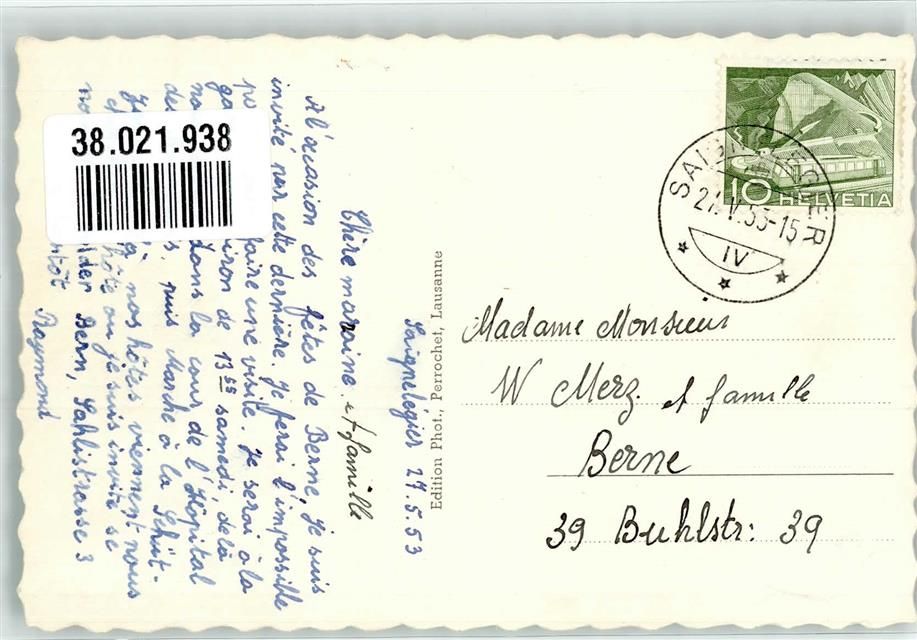 38.021.938
SAIGNELEGIER
27.V.53-15
IV
10 HELVETIA
Saignelégier 27.5.53
Chère marraine et famille
A l'occasion des fêtes de Berne, je suis
invité par cette dernière. Je ferai l'impossible
faire une visite. Je serai à la
13 55 samedi, de là
dans la cour de l'Hôpital
puis Marche à la Schüt-
nos hôtes viennent nous
hôte ou je suis invité se
Bern, Sahlistrasse 3
Raymond
Edition Phot., Perrochet, Lausanne
Madame Monsieur
W Merz. et famille
Berne
39 Buhlstr: 39